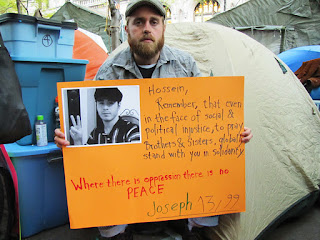 Hossein,
Remember, that even
in the face of social &
political injustice, to pray
Brothers & Sisters, globally
stand with you in solidarity
Where there is oppression there is no
PEACE
Joseph 13/99